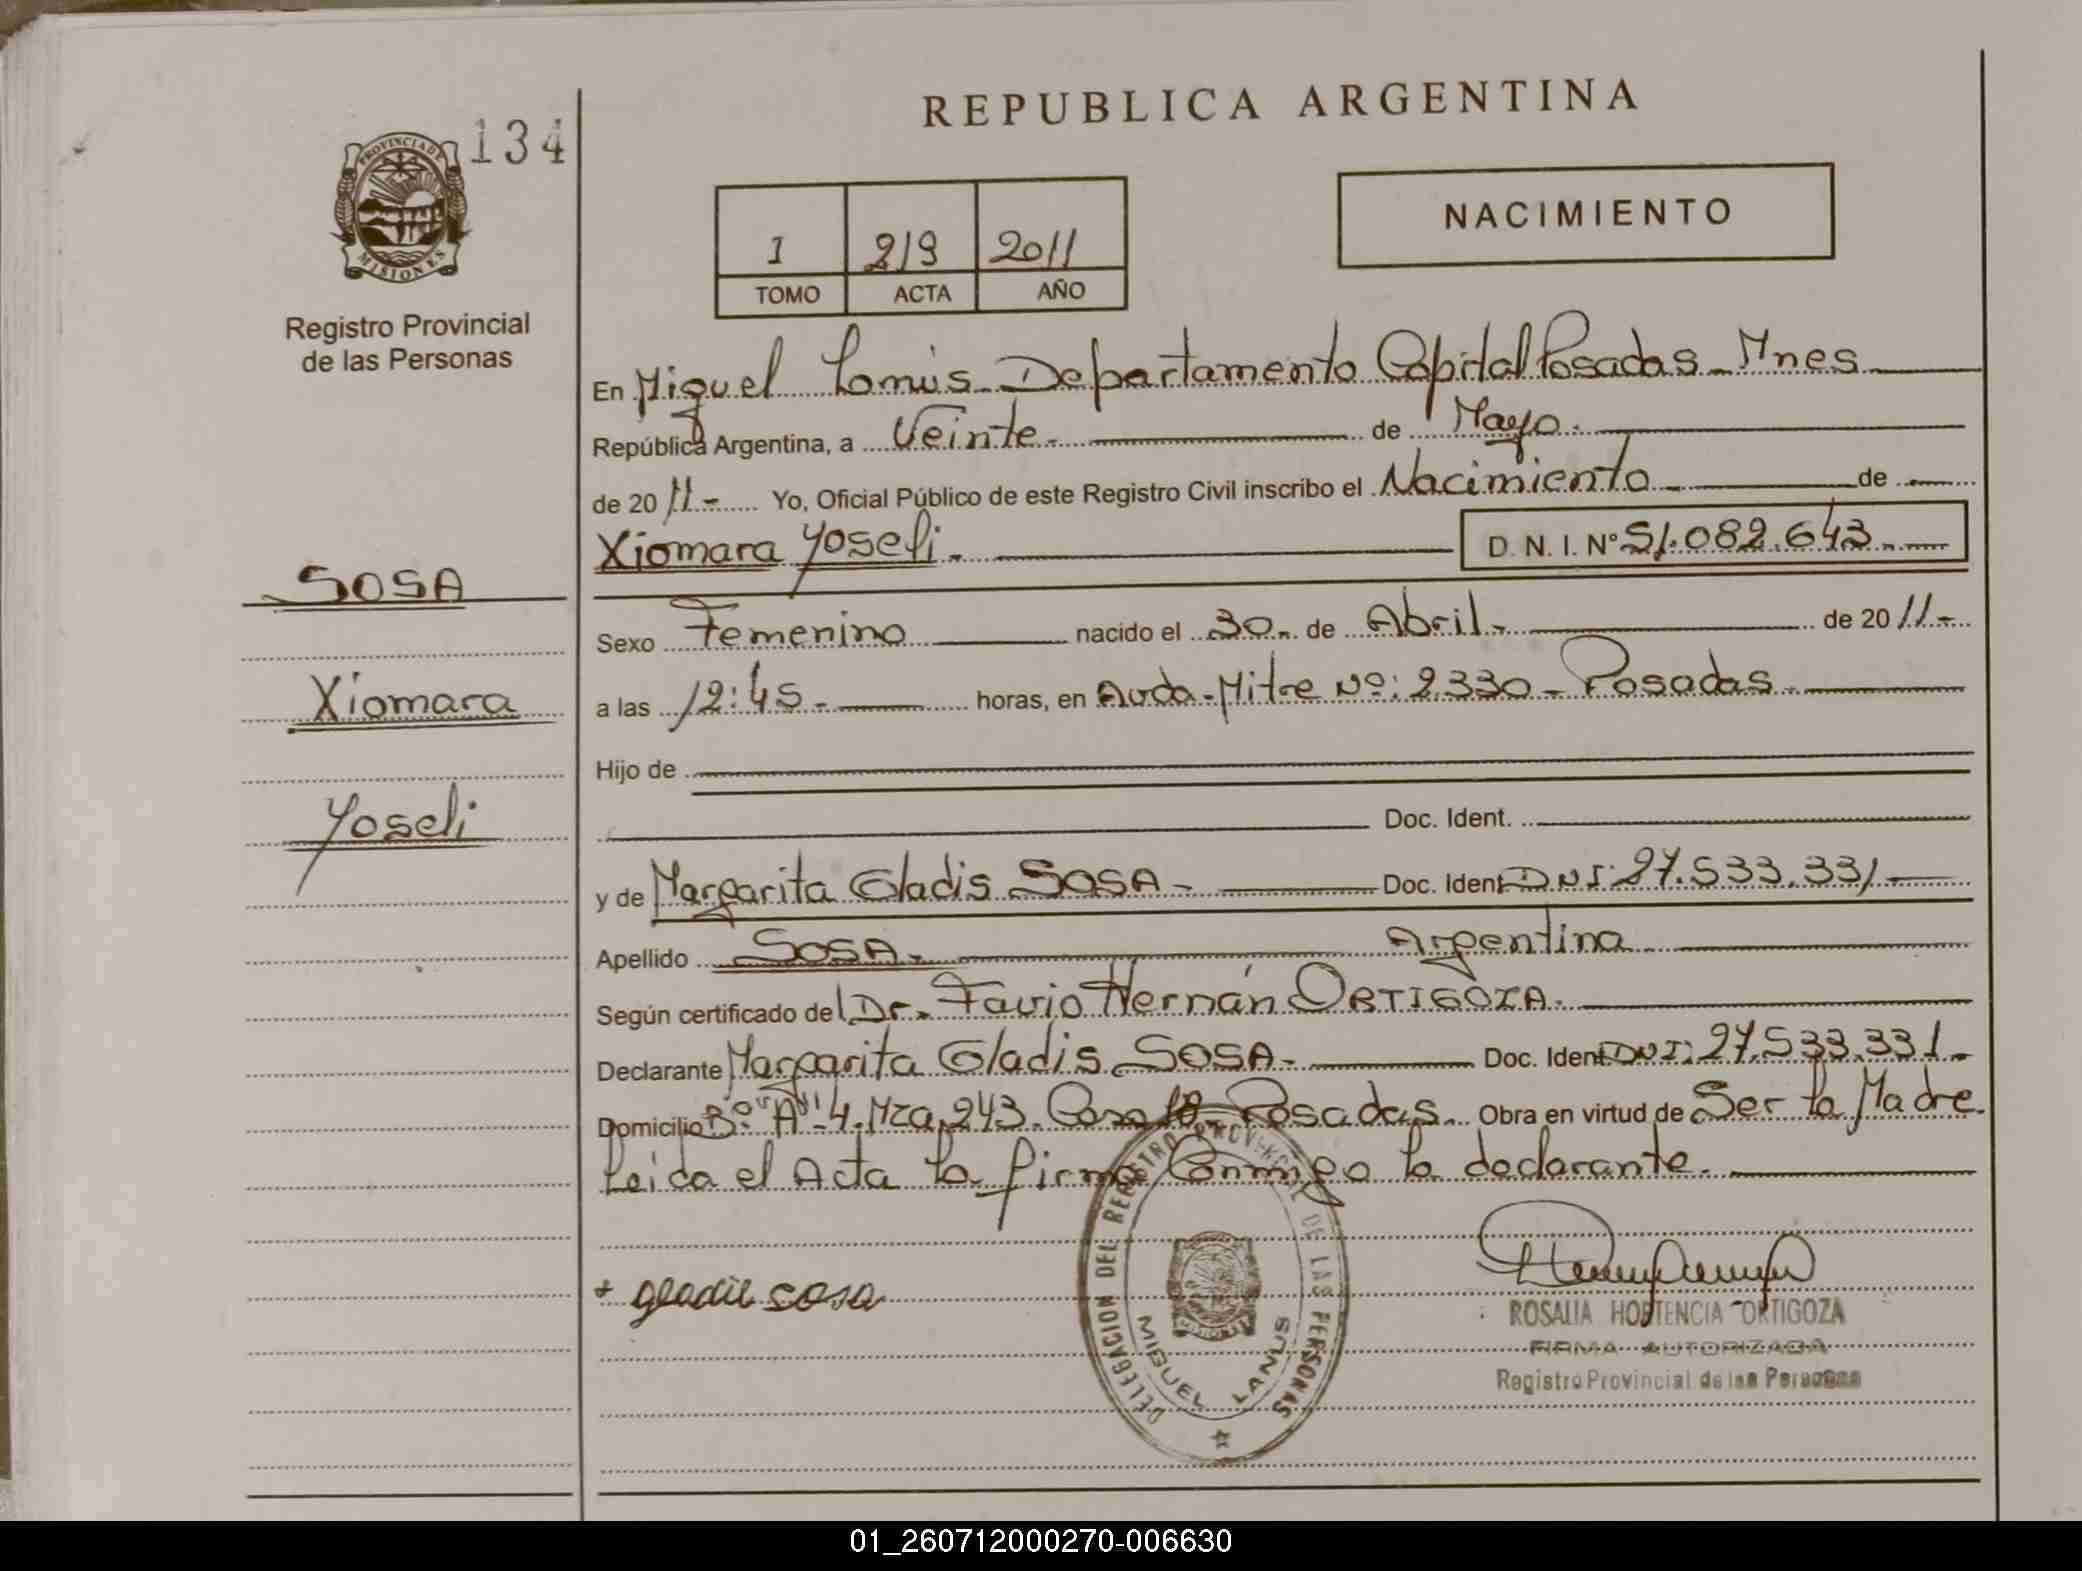 REPUBLICA ARGENTINA
134
PROVINCIA DE MISIONES
Registro Provincial
de las Personas
1 219 2011
TOMO ACTA AÑO
NACIMIENTO
En Miguel Lanus - Departamento Capital Posadas - Mnes
República Argentina, a Veinte - de Mayo -
de 20 11 - Yo, Oficial Público de este Registro Civil inscribo el Nacimiento de
Xiomara Yoseli - D. N. I. Nº 51.082.643 -
SOSA
Xiomara
Yoseli
Sexo Femenino nacido el 30 - de Abril - de 20 11 -
a las 12:45 - horas, en Avda - Mitre Nº: 2330 - Posadas -
Hijo de
Doc. Ident.
y de Margarita Gladis SOSA - Doc. Ident DNI: 27.533.331 -
Apellido SOSA - Argentina
Según certificado del Dr. Favio Hernán ORTIGOZA -
Declarante Margarita Gladis SOSA - Doc. Ident DNI: 27.533.331 -
Domicilio Bº "A" 4. Mza. 243. Casa - Posadas. Obra en virtud de Ser la Madre.
Leida el Acta la firma Conmigo la declarante.
+ gladis sosa
DELEGACION DEL REGISTRO PROVINCIAL DE LAS PERSONAS
MISIONES
MIGUEL LANUS
ROSALIA HORTENCIA ORTIGOZA
FIRMA AUTORIZADA
Registro Provincial de las Personas
01_260712000270-006630